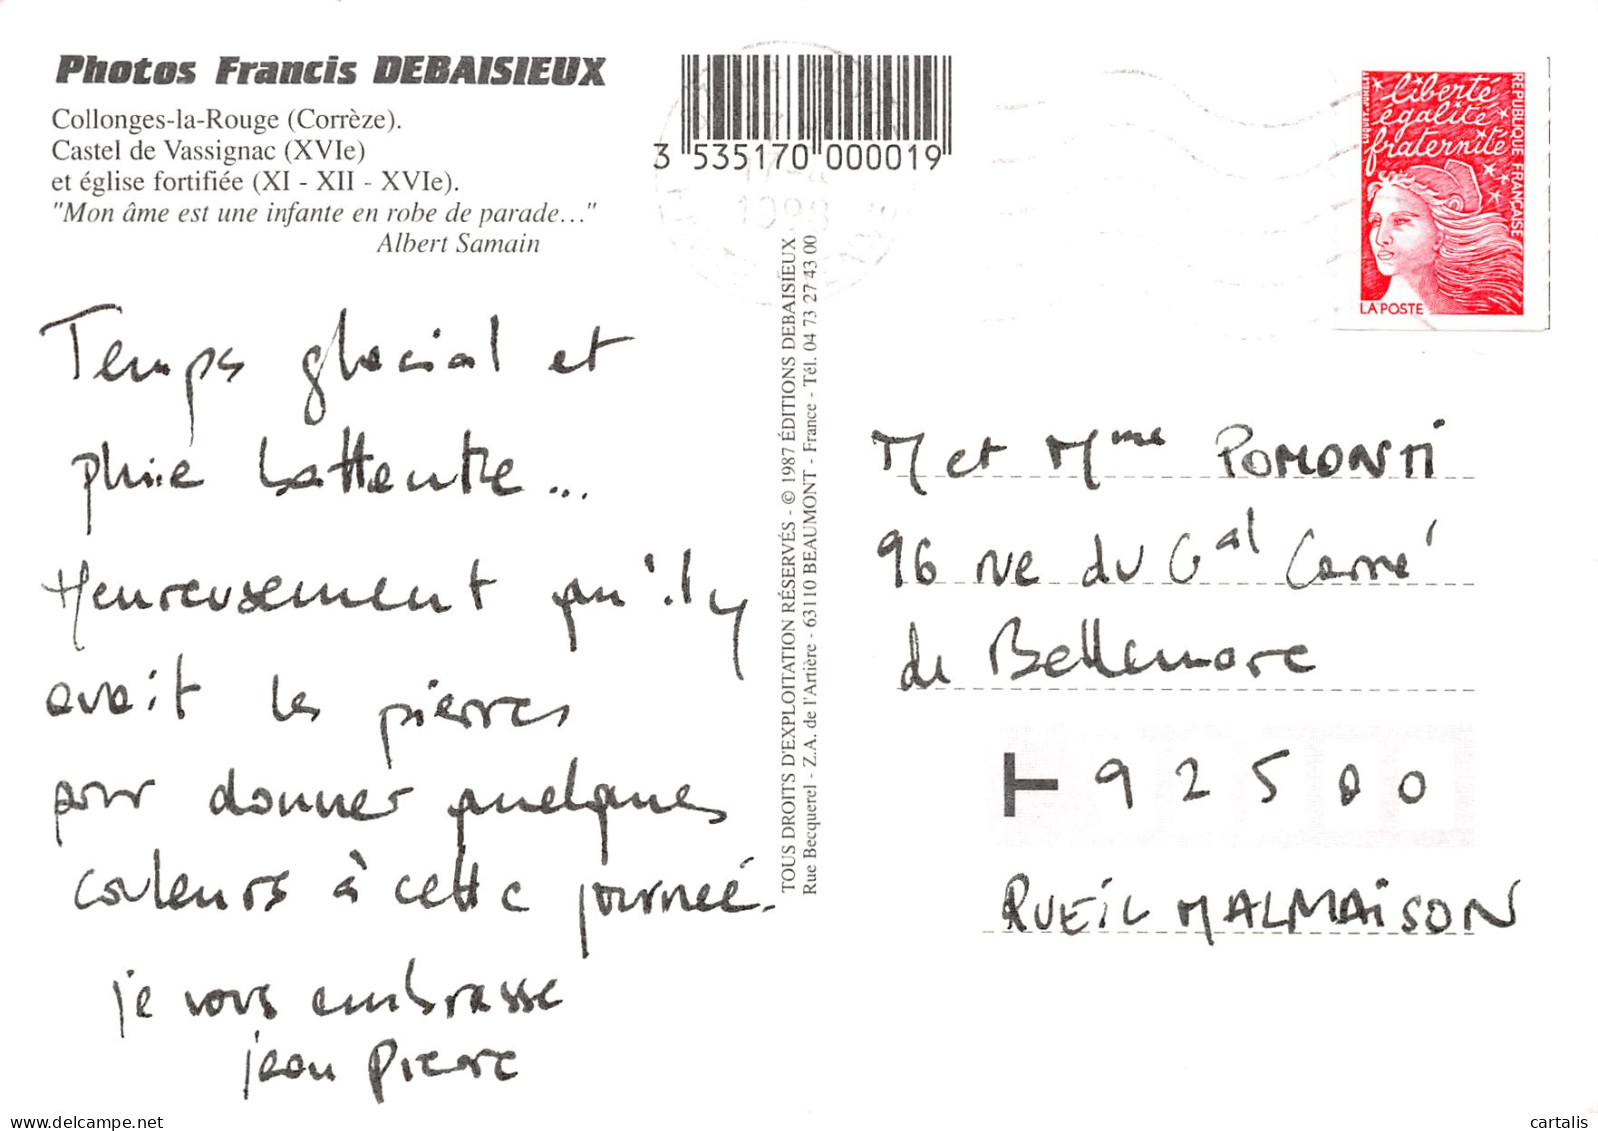 Photos Francis DEBAISIEUX
Collonges-la-Rouge (Corrèze).
Castel de Vassignac (XVIe)
et église fortifiée (XI - XII - XVIe).
"Mon âme est une infante en robe de parade..."
Albert Samain
3 535170 000019
1998
liberté
égalité
fraternité
RÉPUBLIQUE FRANÇAISE
LUQUET-JUMELET
LA POSTE
Temps glacial et
pluie battante...
Heureusement qu'il y
avait les pierres
pour donner quelques
couleurs à cette journée.
je vous embrasse
jean pierre
TOUS DROITS D'EXPLOITATION RÉSERVÉS - © 1987 ÉDITIONS DEBAISIEUX
Rue Becquerel - Z.A. de l'Artière - 63110 BEAUMONT - France - Tél. 04 73 27 43 00
M et Mme POMONTI
96 rue du Gal Carré
de Bellemare
T 92500
RUEIL MALMAISON
cartalis